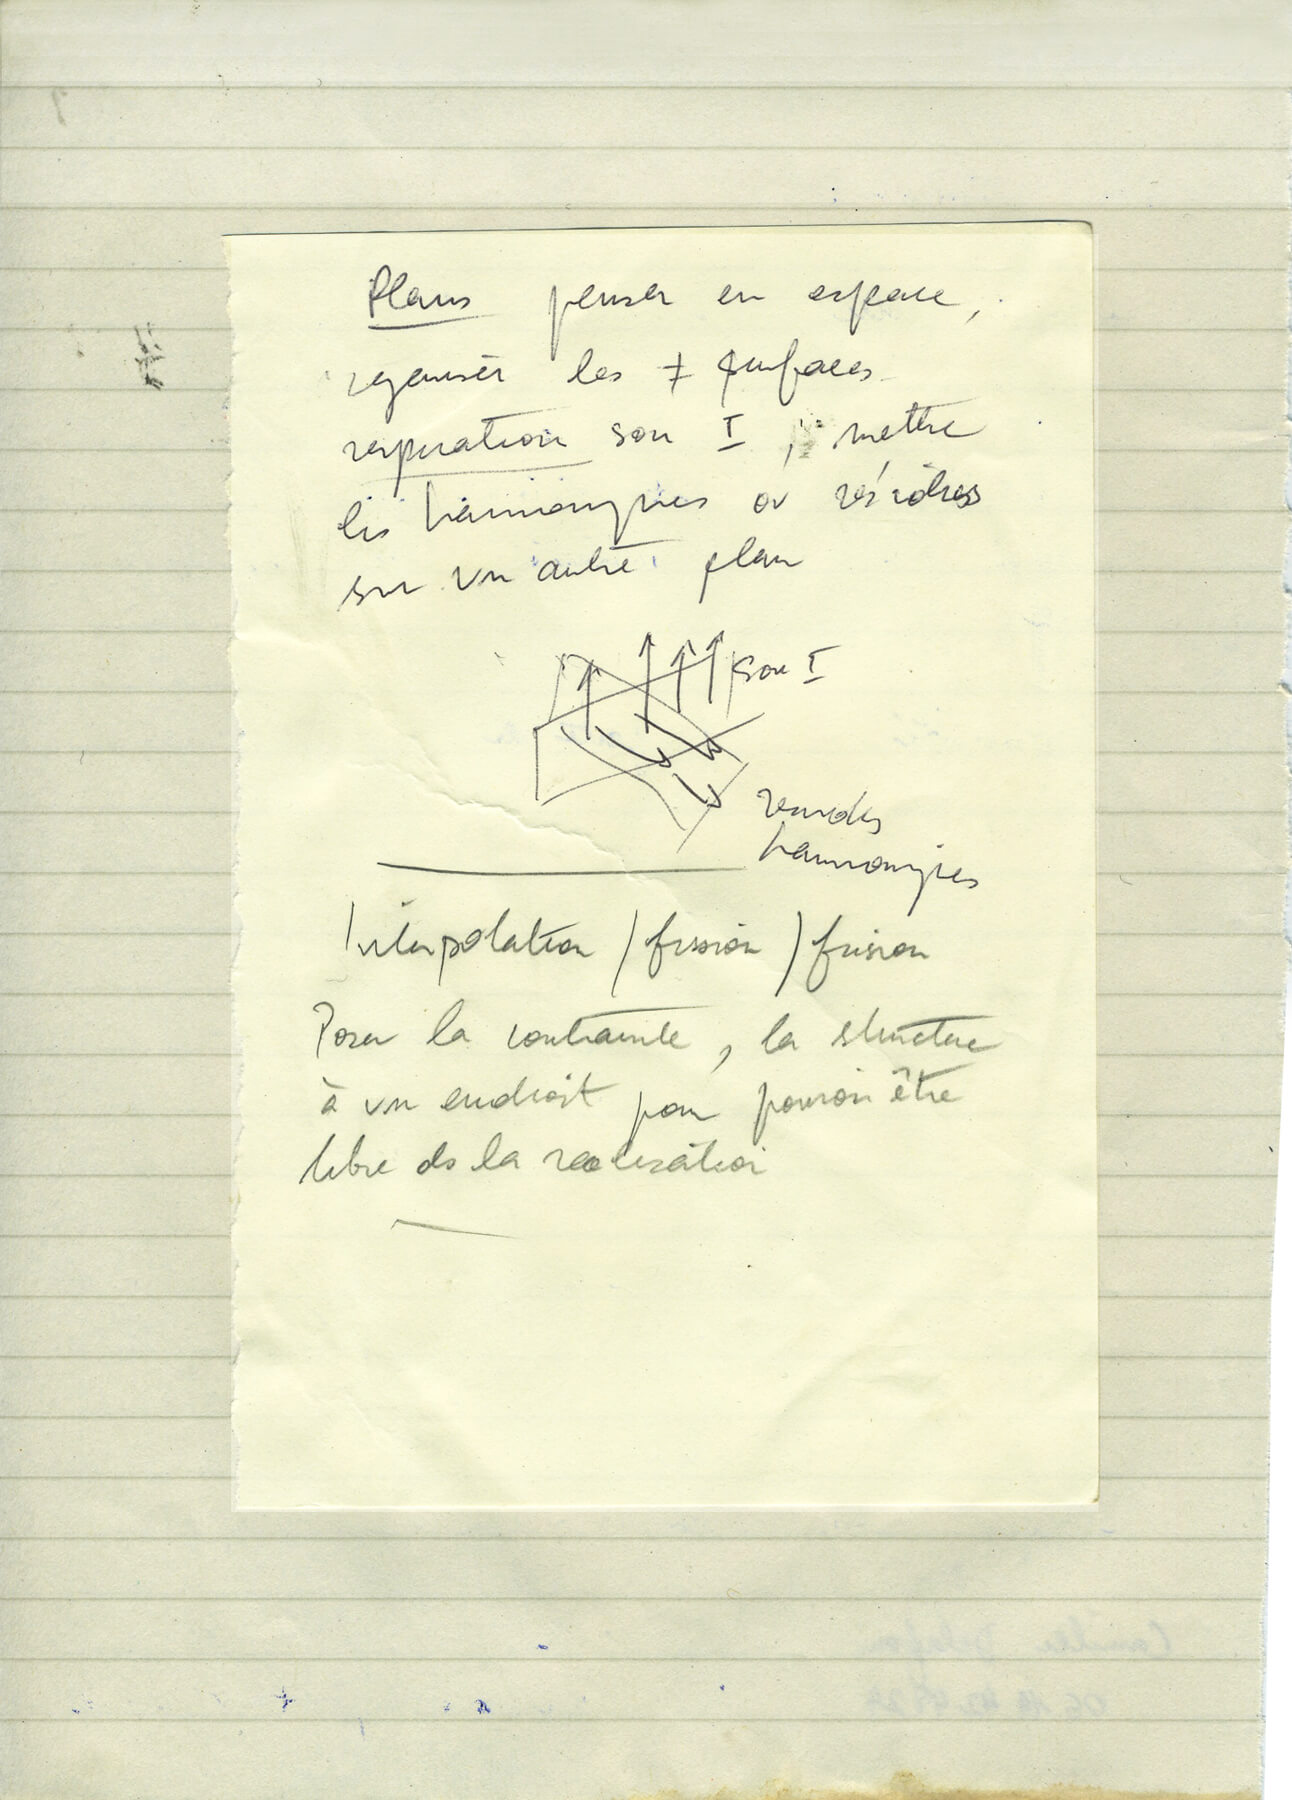 Plans penser en espace,
organiser les ≠ surfaces
respiration son I, mettre
les harmoniques ou résidus
sur un autre plan
son I
résidus
harmoniques
Interpolation / fission / fusion
Poser la contrainte, la structure
à un endroit pour pouvoir être
libre ds la réalisation